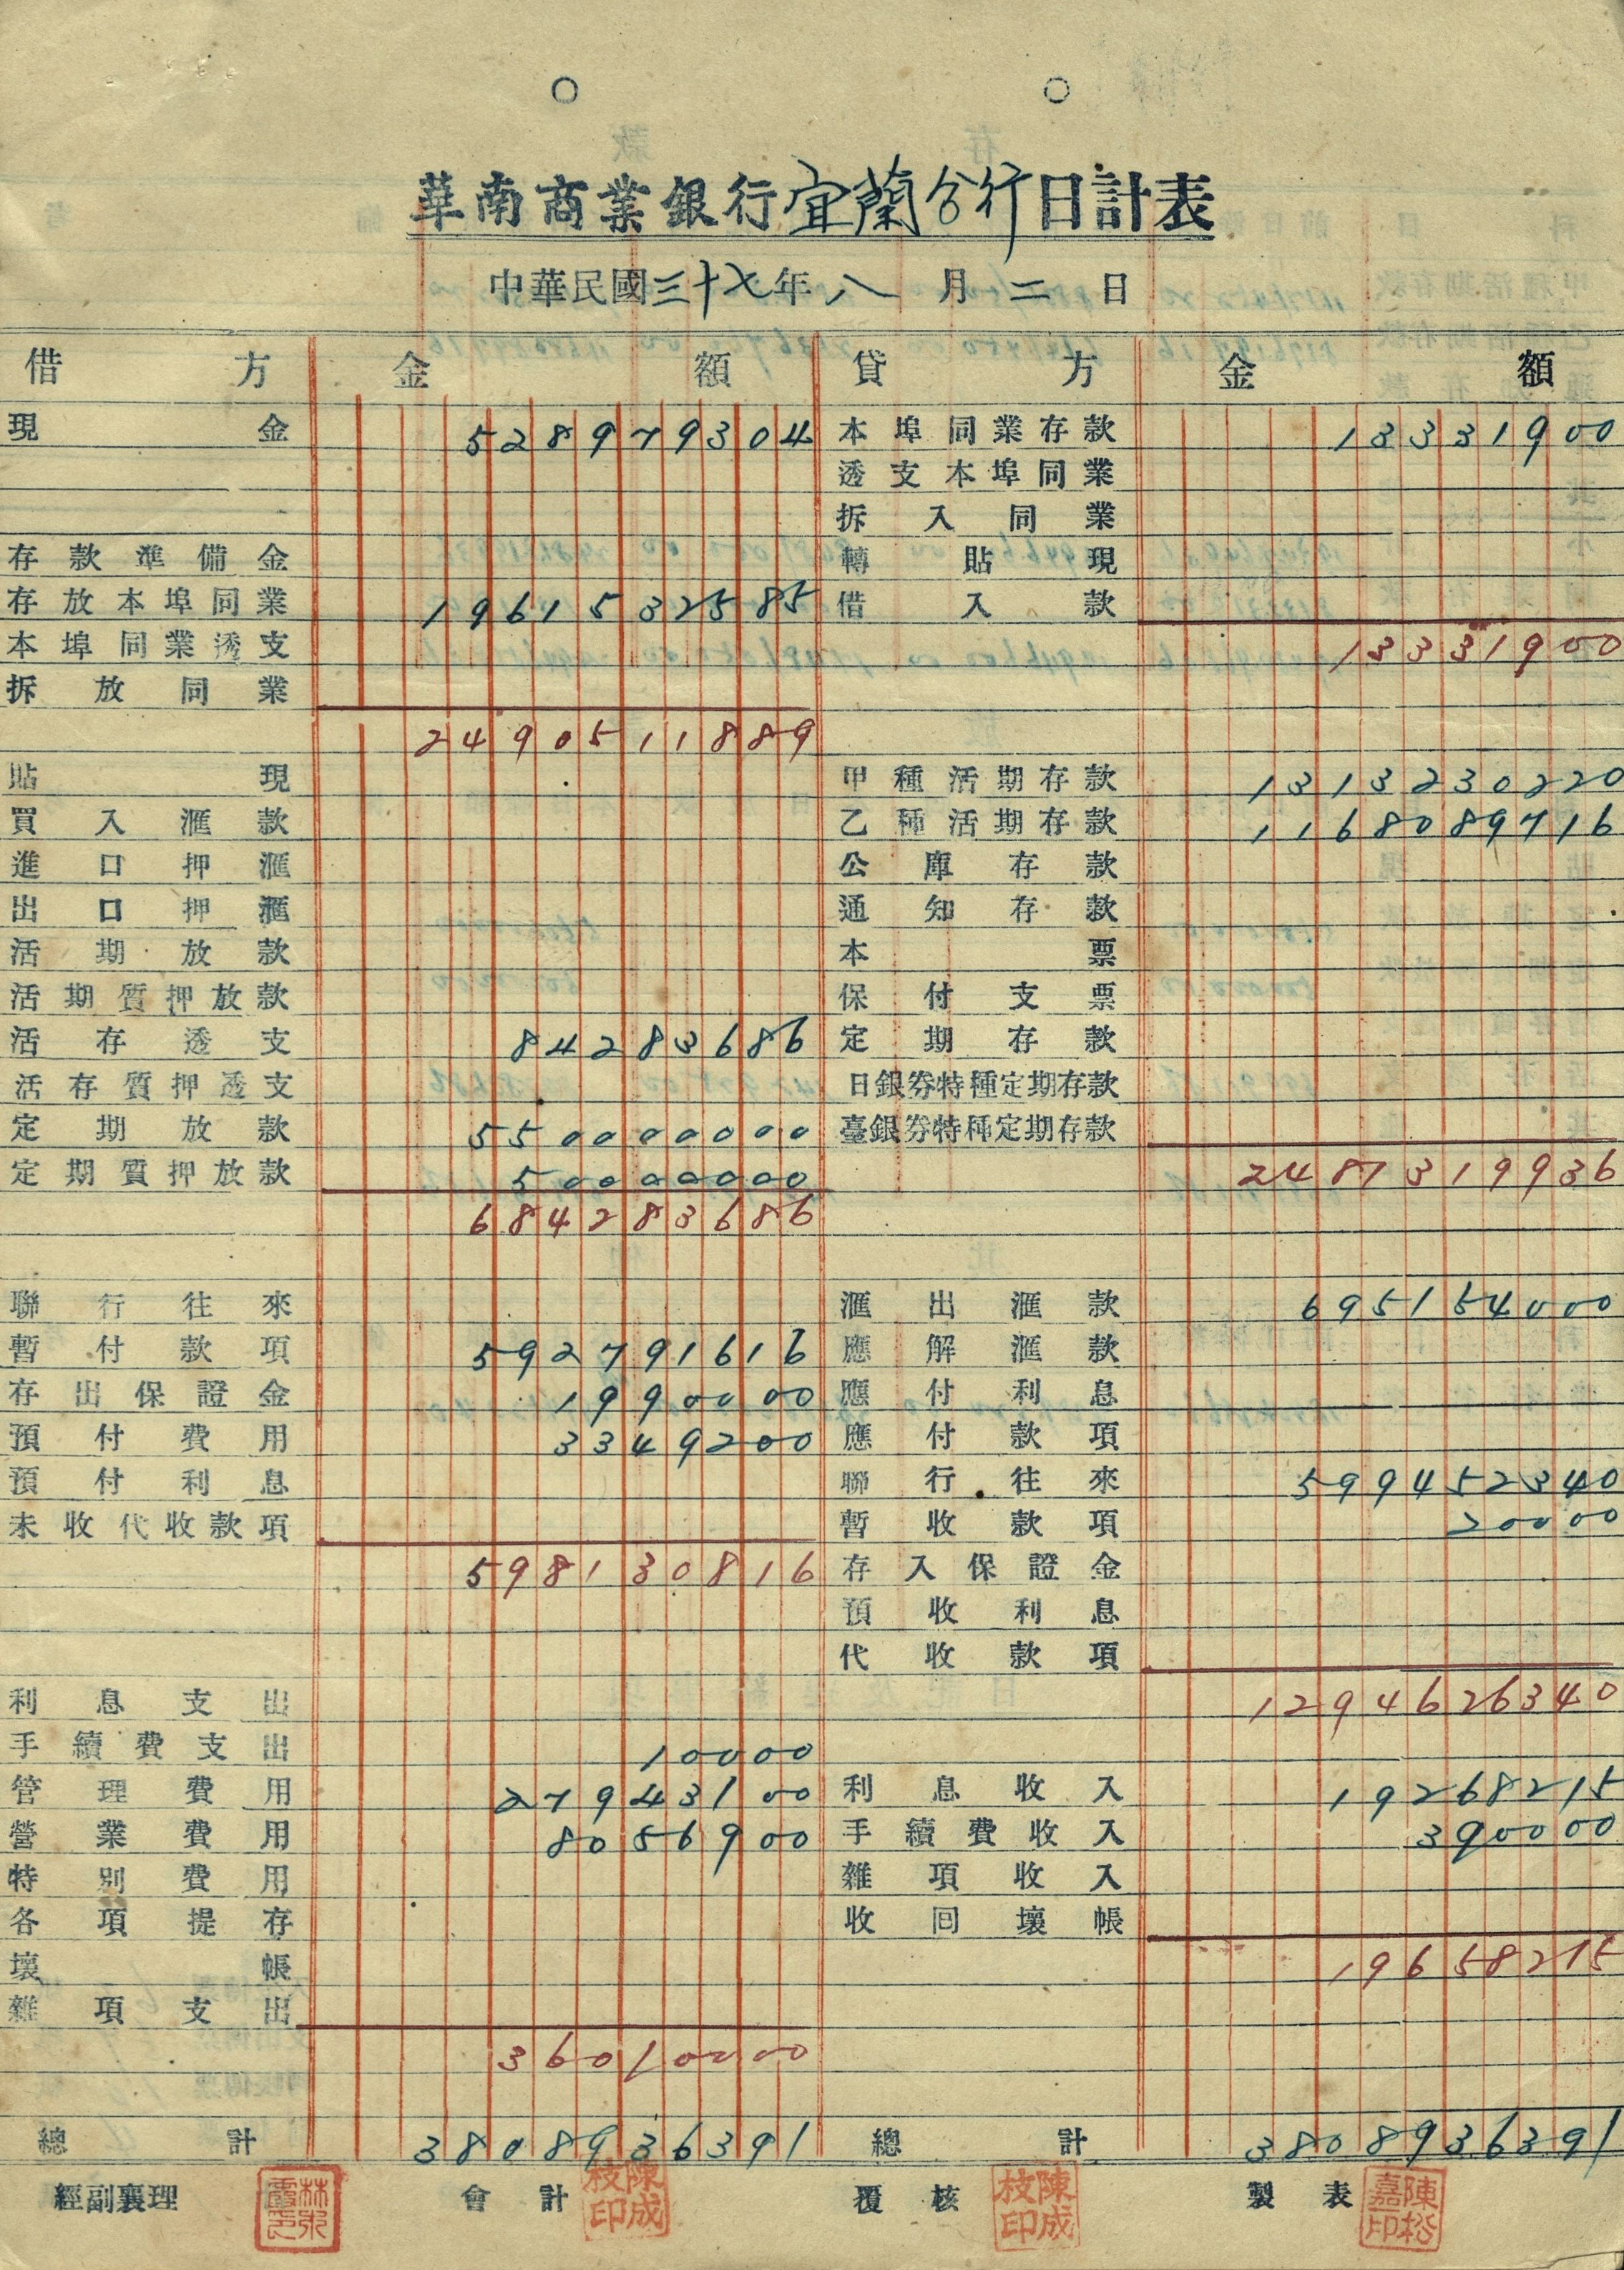 華南商業銀行宜蘭分行日計表
中華民國三十七年八月二日
借方 金額 貸方 金額
現金 528979304 本埠同業存款 13331900
透支本埠同業
拆入同業
存款準備金 轉貼現
存放本埠同業 1961532585 借入款
本埠同業透支 13331900
拆放同業
2490511889
貼現 甲種活期存款 1313230220
買入滙款 乙種活期存款 1168089716
進口押滙 公庫存款
出口押滙 通知存款
活期放款 本票
活期質押放款 保付支票
活存透支 84283686 定期存款
活存質押透支 日銀券特種定期存款
定期放款 550000000 臺銀券特種定期存款
定期質押放款 50000000 2481319936
684283686
聯行往來 滙出滙款 695154000
暫付款項 592791616 應解滙款
存出保證金 1990000 應付利息
預付費用 3349200 應付款項
預付利息 聯行往來 599452340
未收代收款項 暫收款項 20000
598130816 存入保證金
預收利息
代收款項
利息支出 1294626340
手續費支出 10000
管理費用 27943100 利息收入 19268215
營業費用 8056900 手續費收入 390000
特別費用 雜項收入
各項提存 收回壞帳
壞帳 19658215
雜項支出
36010000
總計 3808936391 總計 3808936391
經副襄理 會計 陳成枝印 覆核 陳成枝印 製表 陳松嘉印